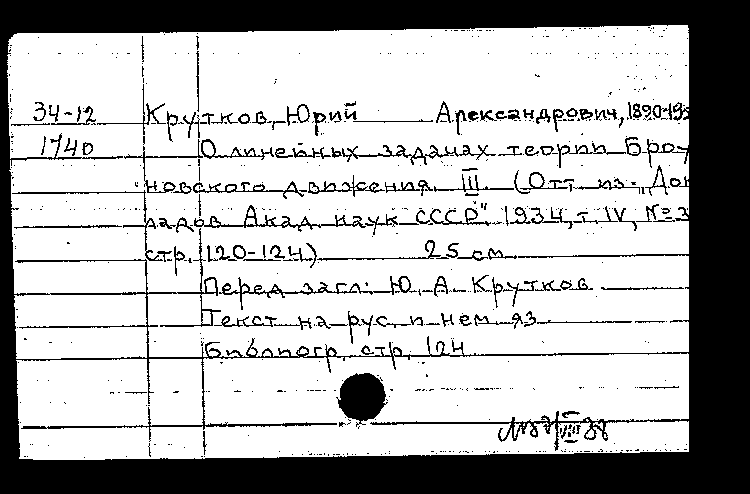 34-12 Крутков, Юрий Александрович, 1890-195
1740 О линейных задачах теории Броу
новского движения. III. (Отт. из „Док
ладов Акад. наук СССР", 1934, т. IV, № 3
стр. 120-124) 25 см.
Перед загл.: Ю. А. Крутков.
Текст на рус. и нем. яз.
Библиогр. стр. 124